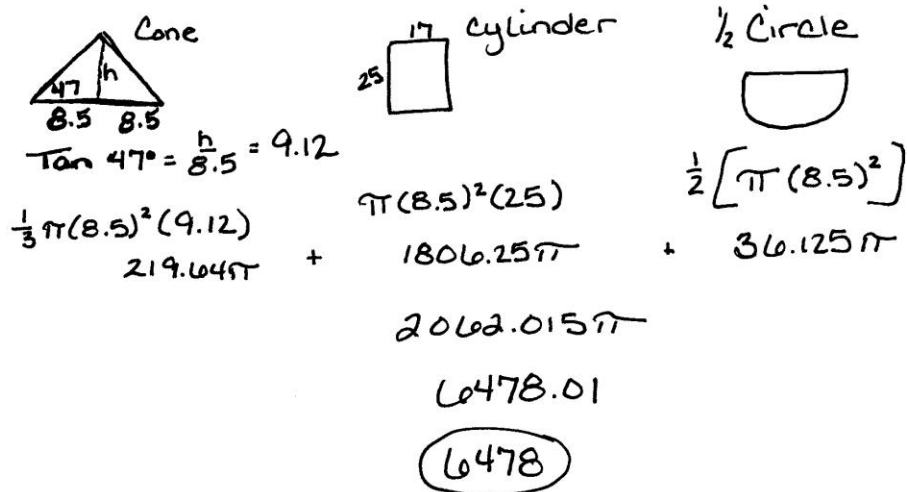 Cone
47 h
8.5 8.5
Tan 47° = h/8.5 = 9.12
1/3 π(8.5)² (9.12)
219.64π
17 Cylinder
25
π(8.5)²(25)
+ 1806.25π
½ Circle
1/2 [π (8.5)²]
+ 36.125π
2062.015π
6478.01
6478